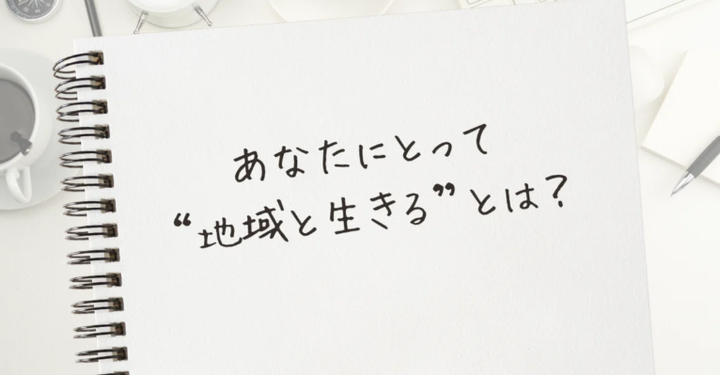 あなたにとって
“地域と生きる”とは？